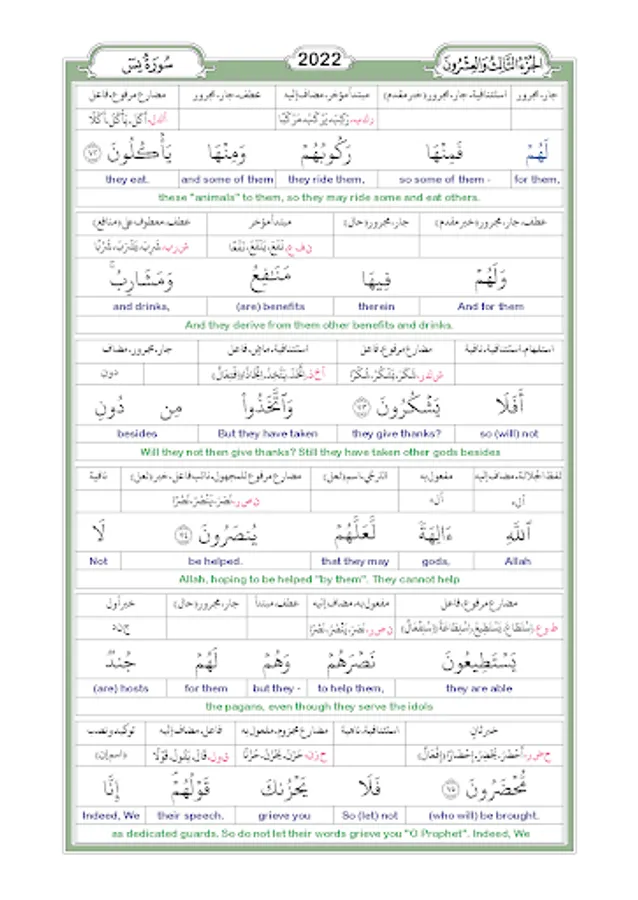 سُورَةُ يٰسٓ 2022 الجزء الثالث والعشرون
جار، مجرور استئنافية، جار، مجرور (خبر مقدم) مبتدأ مؤخر، مضاف إليه عطف، جار، مجرور مضارع مرفوع، فاعل
لَهُمْ فَمِنْهَا رَكُوبُهُمْ وَمِنْهَا يَأْكُلُونَ ٧٢
they eat. and some of them they ride them, so some of them - for them,
these "animals" to them, so they may ride some and eat others.
عطف، جار، مجرور (خبر مقدم) جار، مجرور (حال) مبتدأ مؤخر عطف، معطوف على (منافع)
ن ف ع، نَفَعَ، يَنْفَعُ، نَفْعًا ش ر ب، شَرِبَ، يَشْرَبُ، شُرْبًا
وَلَهُمْ فِيهَا مَنَٰفِعُ وَمَشَارِبُ ۖ
and drinks, (are) benefits therein And for them
And they derive from them other benefits and drinks.
استفهام، استئنافية، نافية مضارع مرفوع، فاعل استئنافية، ماضٍ، فاعل جار، مجرور، مضاف
ش ك ر، شَكَرَ، يَشْكُرُ، شُكْرًا أ خ ذ، اِتَّخَذَ، يَتَّخِذُ، اِتِّخَاذًا (اِفْتِعَالٌ) دون
أَفَلَا يَشْكُرُونَ ٧٣ وَٱتَّخَذُوا۟ مِن دُونِ
besides But they have taken they give thanks? so (will) not
Will they not then give thanks? Still they have taken other gods besides
لفظ الجلالة، مضاف إليه مفعول به الترجي، اسم (لعل) مضارع مرفوع للمجهول، نائب فاعل، خبر (لعل) نافية
أ ل ه أ ل ه ن ص ر، نَصَرَ، يَنْصُرُ، نَصْرًا
ٱللَّهِ ءَالِهَةً لَّعَلَّهُمْ يُنصَرُونَ ٧٤ لَا
Not be helped. that they may gods, Allah
Allah, hoping to be helped "by them". They cannot help
مضارع مرفوع، فاعل مفعول به، مضاف إليه عطف، مبتدأ جار، مجرور (حال) خبر أول
ط و ع، اِسْتَطَاعَ، يَسْتَطِيعُ، اِسْتِطَاعَةً (اِسْتِفْعَالٌ) ن ص ر، نَصَرَ، يَنْصُرُ، نَصْرًا ج ن د
يَسْتَطِيعُونَ نَصْرَهُمْ وَهُمْ لَهُمْ جُندٌ
(are) hosts for them but they - to help them, they are able
the pagans, even though they serve the idols
خبر ثانٍ استئنافية، ناهية مضارع مجزوم، مفعول به فاعل، مضاف إليه توكيد ونصب
ح ض ر، أَحْضَرَ، يُحْضِرُ، إِحْضَارًا (إِفْعَالٌ) ح ز ن، حَزَنَ، يَحْزُنُ، حُزْنًا ق و ل، قَالَ، يَقُولُ، قَوْلًا (اسم إن)
مُّحْضَرُونَ ٧٥ فَلَا يَحْزُنكَ قَوْلُهُمْ ۘ إِنَّا
Indeed, We their speech. grieve you So (let) not (who will) be brought.
as dedicated guards. So do not let their words grieve you "O Prophet". Indeed, We